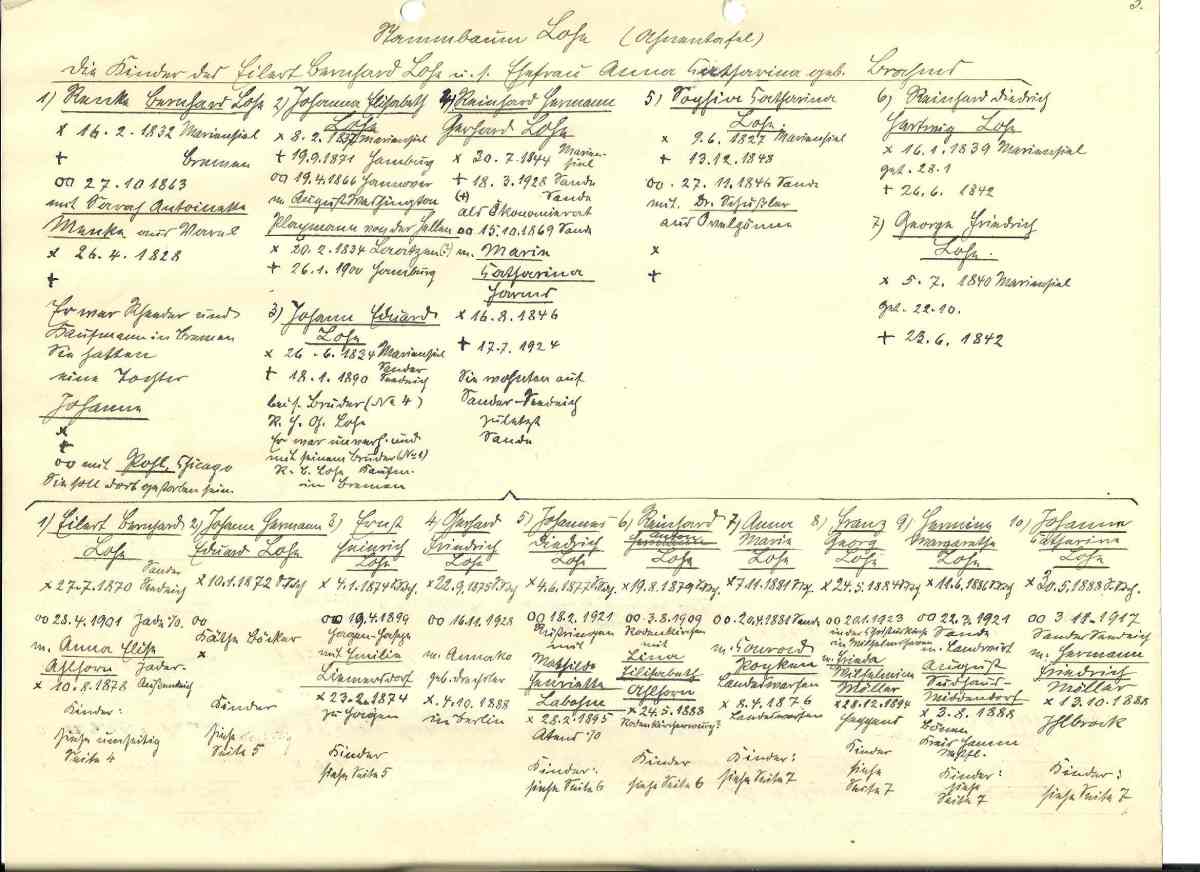 3.
Stammbaum Lohe (Ahnentafel)
Die Kinder des Eilert Bernhard Lohe u. s. Ehefrau Anna Catharina geb. Brahms
1) Renke Bernhard Lohe
x 16.2.1832 Mariensiel
+ Bremen
oo 27.10 1863
mit Sarah Antoinette
Menke aus Varel
x 26.4.1828
+
Er war Rheeder und
Kaufmann in Bremen
Sie hatten
eine Tochter
Johanne
x
+
oo mit Pohl, Chicago
Sie soll dort gestorben sein.
2) Johanna Elisabeth
Lohe
x 8.2.1837 Mariensiel
+ 19.9.1871 Hamburg
oo 19.4.1866 Hannover
m. August Washington
Plagmann von der Hellen
x 20.2.1834 (?)
+ 26.1.1900 Hamburg
3) Johann Eduard
Lohe
x 26.6.1834 Mariensiel
+ 18.1.1890 Sander
Seedeich
bei s. Bruder (No 4)
R. H. G. Lohe
Er war unverh. und
mit seinem Bruder (No 1)
R. B. Lohe Kaufm.
in Bremen
4) Reinhard Hermann
Gerhard Lohe
x 30.7.1844 Marien-
siel
+ 18.3.1928 Sande
(+) Sande
als Ökonomierat
oo 15.10.1869 Sande
m. Marie
Catharina
Harms
x 16.8.1846
+ 17.7.1924
Sie wohnten auf
Sander-Seedeich
zuletzt
Sande
5) Sophie Catharina
Lohe.
x 9.6.1827 Mariensiel
+ 13.12.1848
oo. 27.11.1846 Sande
mit. Dr. Schüßler
aus Ovelgönne
x
+
6) Reinhard Diedrich
Hartwig Lohe
x 16.1.1839 Mariensiel
get. 28.1
+ 26.6.1842
7) George Friedrich
Lohe.
x 5.7.1840 Mariensiel
get. 22.10.
+ 23.6.1842
1) Eilert Bernhard
Lohe
x 27.7.1870 Sander
Seedeich
oo 28.4.1901 Jade i/O.
m. Anna Elise
Ahlhorn Jader-
x 10.8.1878 Außendeich
Kinder:
siehe umseitig
Seite 4
2) Johann Hermann
Eduard Lohe
x 10.1.1872 S.Sdch
oo
Käthe Böcker
x
Kinder
siehe
Seite 5
3) Ernst
Heinrich
Lohe
x 4.1.1874 S.Sdch.
oo 19.4.1899
mit Emilie
x 23.2.1874
Kinder
siehe Seite 5
4. Gerhard
Friedrich
Lohe
x 22.9.1875 S.Sdch
oo 16.11.1928
m. Anna
geb. Drechsler
x. 4.10.1888
in Berlin
5) Johannes
Diedrich
Lohe
x 4.6.1877 S.Sdch
oo 18.2.1921
Rüstringen
mit
Mathilde
Henriette
x 28.2.1895
Atens i/O
Kinder:
siehe Seite 6
6) Reinhard
Anton
Lohe
x 19.8.1879 S.Sdch
oo 3.8.1909
Rodenkirchen
mit
Lina
Elisabeth
Ahlhorn
x 24.5.1888
Kinder
siehe Seite 6
7) Anna
Marie
Lohe
x 7.11.1881 S.Sdg.
oo 20.4.1881 Sande
m.
x 8.4.1876
Kinder:
siehe Seite 7
8) Franz
Georg
Lohe
x 24.5.1884 S.Sdg
oo 20.1.1923
in der Christuskirche
in Wilhelmshaven
m. Frieda
Wilhelmine
Möller
x 28.12.1894
Heppens
Kinder
siehe
Seite 7
9) Hermine
Margarethe
Lohe
x 11.6.1886 S.Sdch
oo 22.3.1921
Sande
m. Landwirt
August
Middendorf
x 3.8.1888
Bönen
Kreis Hamm
Westfl.
Kinder:
siehe
Seite 7
10) Johanne
Catharine
Lohe
x 30.5.1888 S.Sdch.
oo 3.12.1917
Sander Seedeich
m. Hermann
Friedrich
Möller
x 13.10.1888
Kinder:
siehe Seite 7